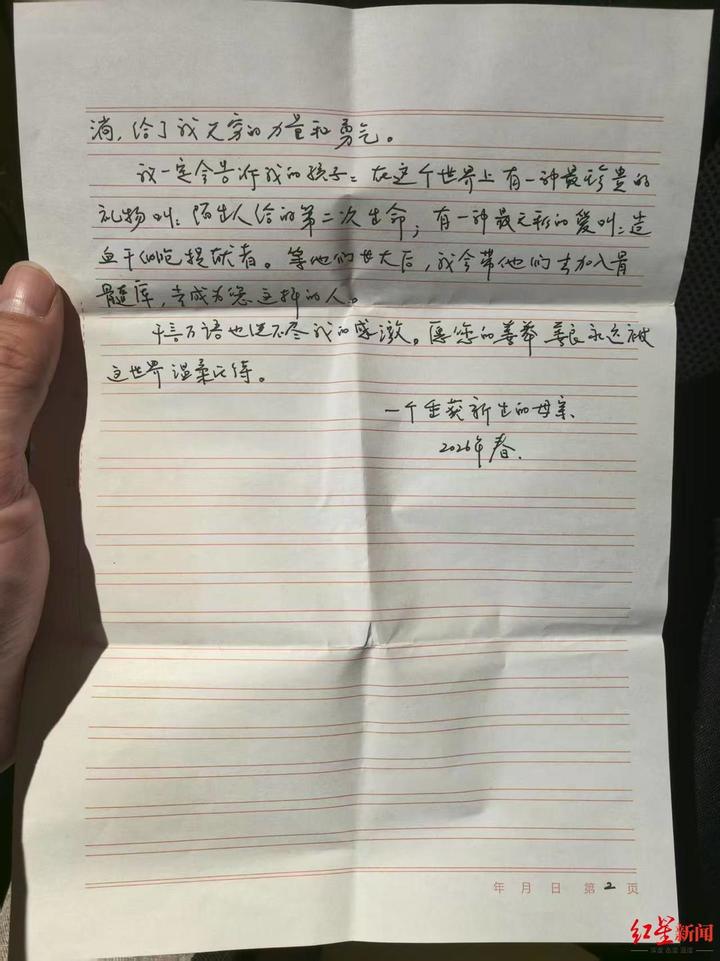 淌，给了我无穷的力量和勇气。
我一定会告诉我的孩子：在这个世界上有一种最珍贵的
礼物叫：陌生人给的第二次生命；有一种最无私的爱叫：造
血干细胞捐献者。等他们长大后，我会带他们去加入骨
髓库，去成为您这样的人。
千言万语也道不尽我的感激。愿您的善举 善良永远被
这世界温柔以待。
一个重获新生的母亲
2026年春.
年 月 日 第 2 页
红星新闻
深度 态度 温度